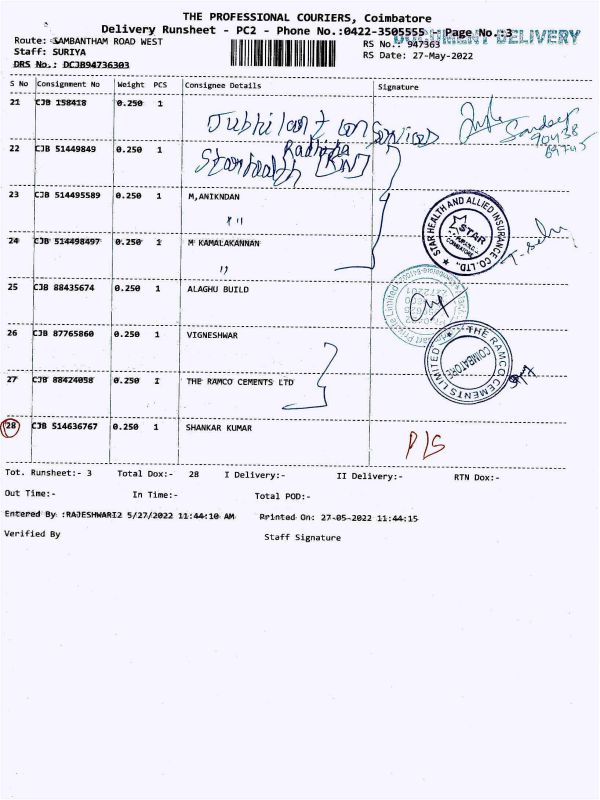 THE PROFESSIONAL COURIERS, Coimbatore
Delivery Runsheet - PC2 - Phone No.:0422-3505555 - Page No.:3
DOCUMENT DELIVERY
Route: SAMBANTHAM ROAD WEST
RS No.: 947363
Staff: SURIYA
RS Date: 27-May-2022
DRS No.: DCJB94736303
S No Consignment No Weight PCS Consignee Details Signature
21 CJB 158418 0.250 1
Services
Sandeep
90438
89745
22 CJB 51449849 0.250 1
Radhika
Starhealth
23 CJB 514495589 0.250 1 M,ANIKNDAN
24 CJB 514498497 0.250 1 M KAMALAKANNAN
STAR HEALTH AND ALLIED INSURANCE CO. LTD.,
STAR
COIMBATORE
25 CJB 88435674 0.250 1 ALAGHU BUILD
26 CJB 87765860 0.250 1 VIGNESHWAR
27 CJB 88424058 0.250 1 THE RAMCO CEMENTS LTD
THE RAMCO CEMENTS LIMITED
COIMBATORE
28 CJB 514636767 0.250 1 SHANKAR KUMAR
P/S
Tot. Runsheet:- 3 Total Dox:- 28 I Delivery:- II Delivery:- RTN Dox:-
Out Time:- In Time:- Total POD:-
Entered By :RAJESHWARI2 5/27/2022 11:44:10 AM Printed On: 27-05-2022 11:44:15
Verified By Staff Signature